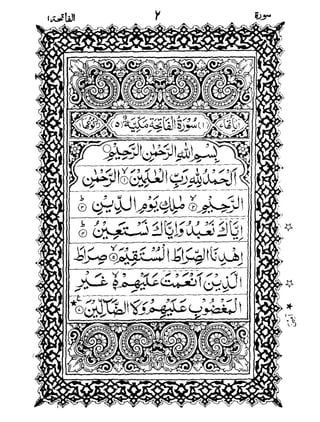 سورة ٢ الفاتحة ١
اياتها ٧ (١) سُوْرَةُ الْفَاتِحَةِ مَكِّيَّةٌ (٥) ركوعها ١
بِسْمِ اللّٰهِ الرَّحْمٰنِ الرَّحِيْمِ
اَلْحَمْدُ لِلّٰهِ رَبِّ الْعٰلَمِيْنَ ۱ الرَّحْمٰنِ
الرَّحِيْمِ ۲ مٰلِكِ يَوْمِ الدِّيْنِ ۳
اِيَّاكَ نَعْبُدُ وَاِيَّاكَ نَسْتَعِيْنُ ۴
اِهْدِنَا الصِّرَاطَ الْمُسْتَقِيْمَ ۵ صِرَاطَ
الَّذِيْنَ اَنْعَمْتَ عَلَيْهِمْ ۶ غَيْرِ
الْمَغْضُوْبِ عَلَيْهِمْ وَلَا الضَّآلِّيْنَ ۷